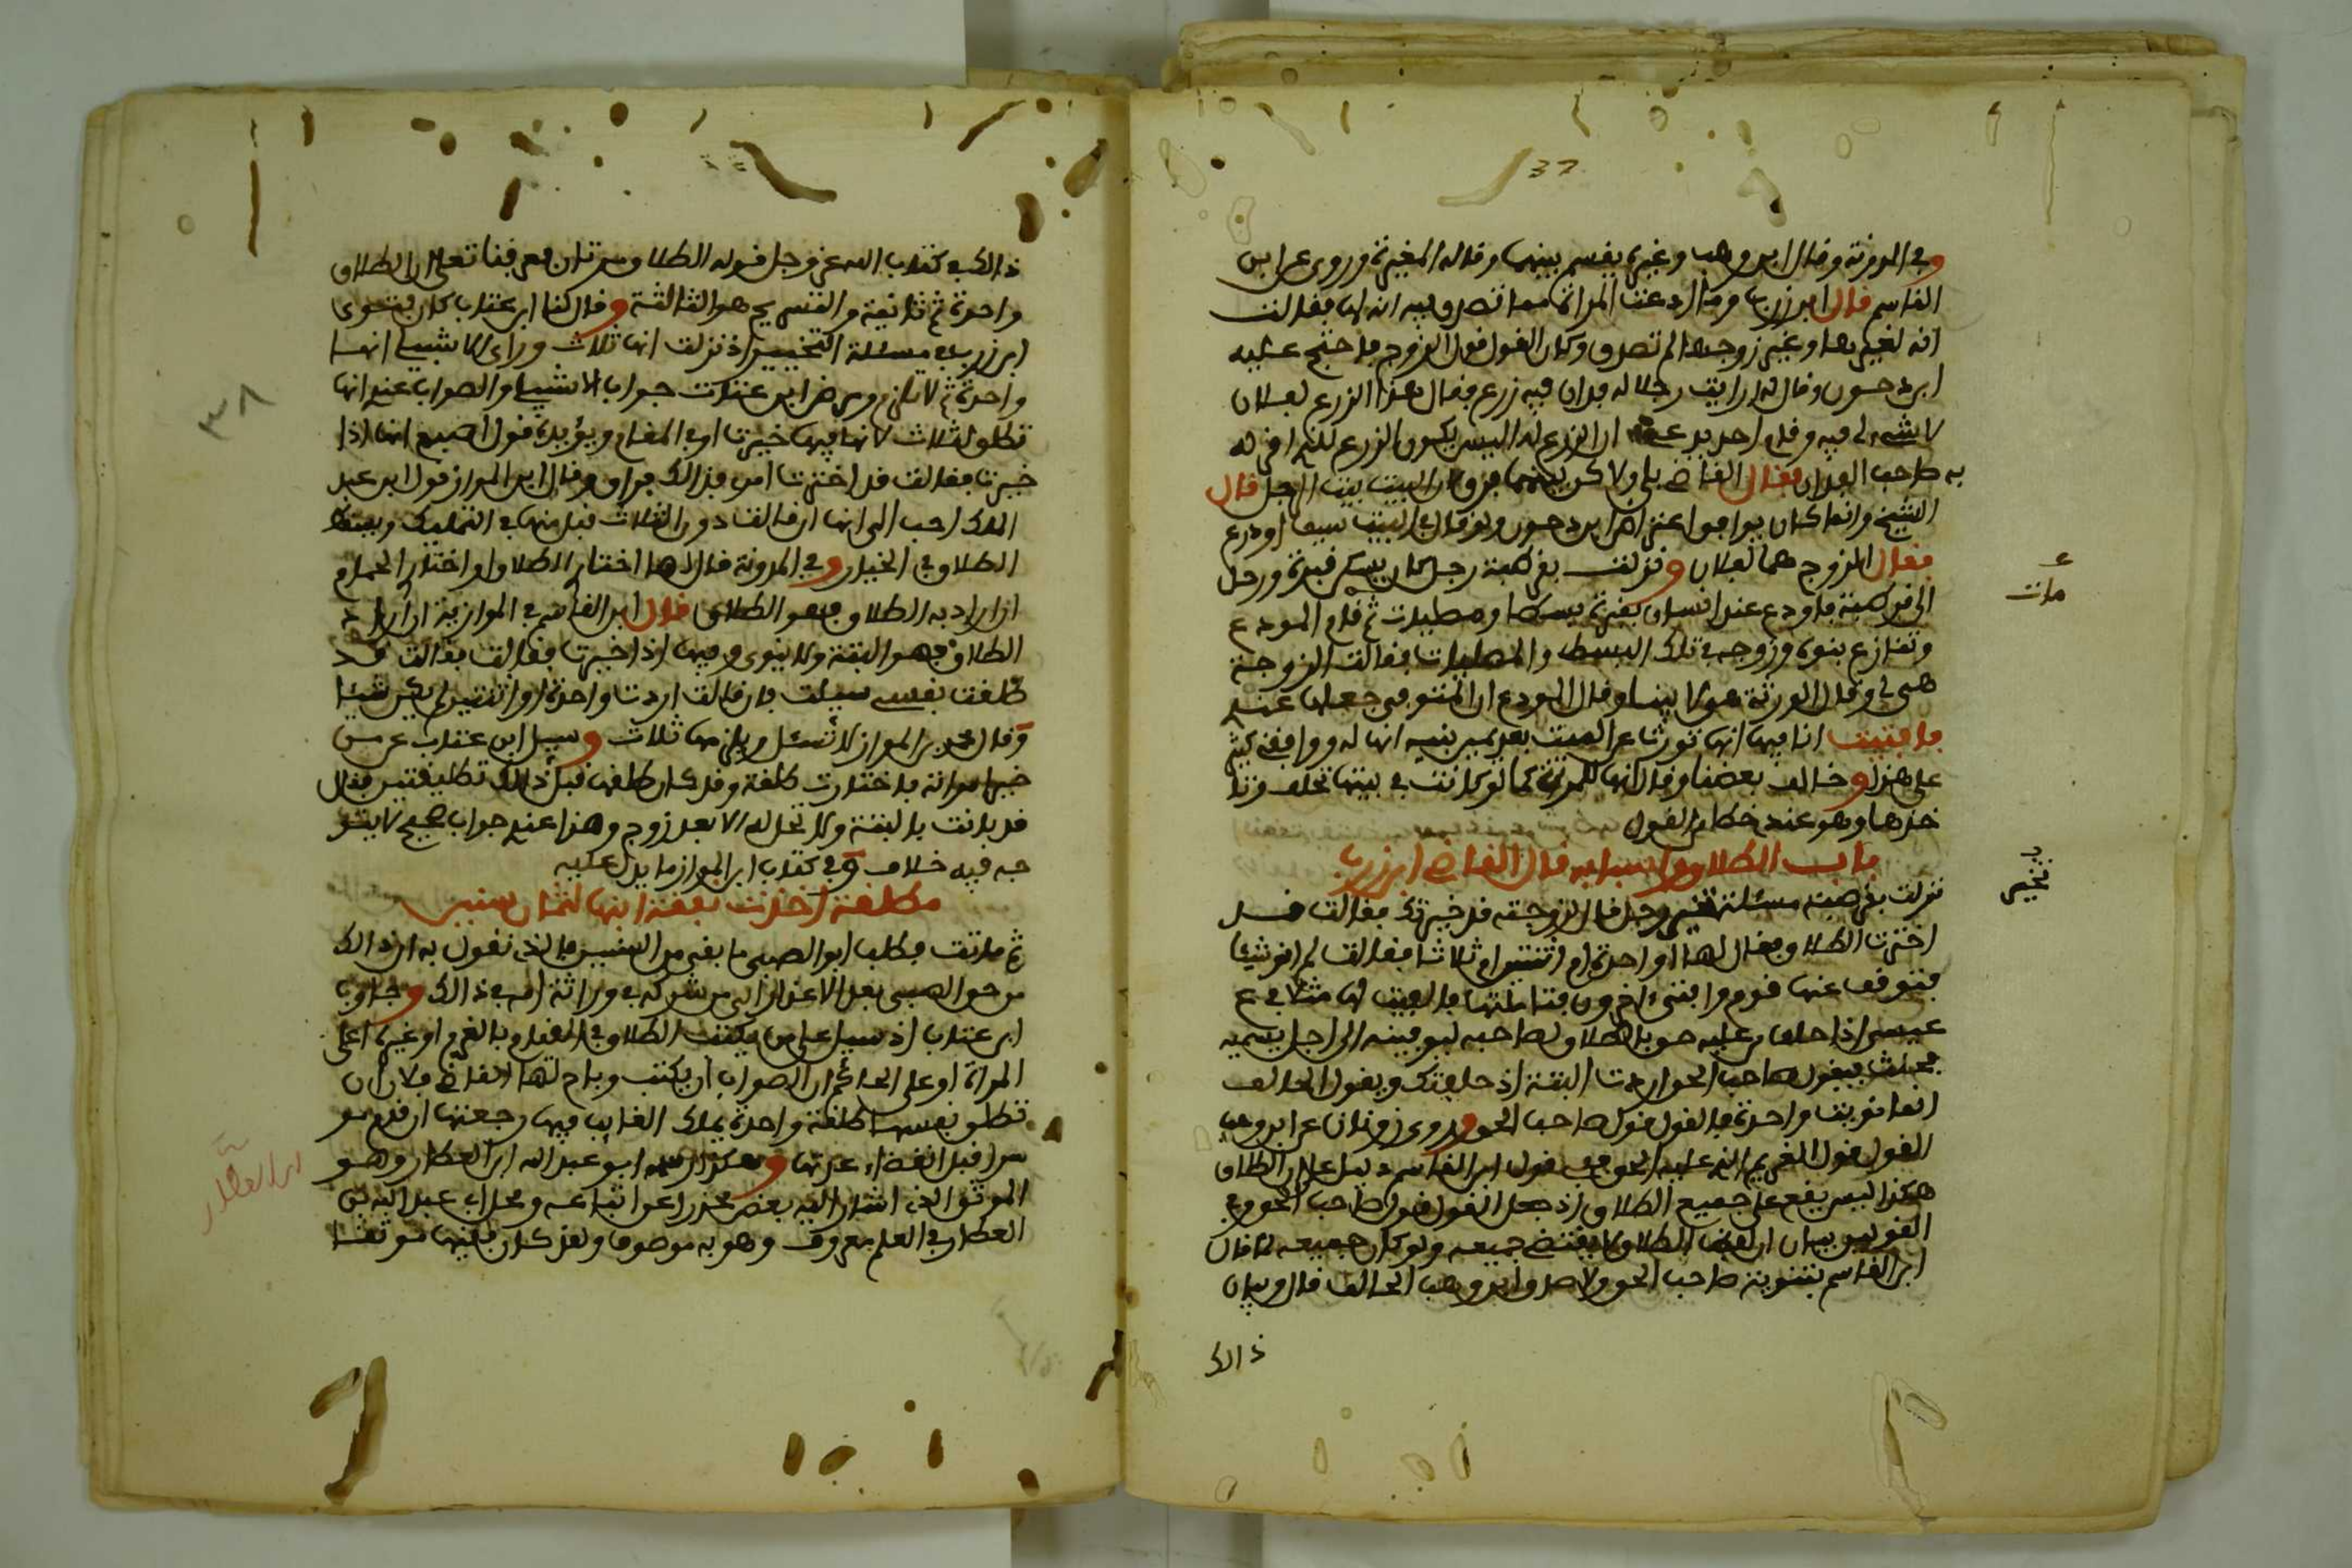 37
وفي المدونة وقال ابن وهب وغيره يقسم بينهما وقاله المغيرة وروي عن ابن
القاسم قال ابن زرب وما ادعت المراة مما تصدق فيه انه لها فقالت
انه لغيرها وغير زوجها لم تصدق وكان القول قول الزوج فاحتج عليه
ابن دحون وقال له ارايت رجلا له فدان فيه زرع فقال هذا الزرع لفلان
لا شيء لي فيه وقام احد يدعي ان الزرع له اليس يكون الزرع للذي اقر له
به صاحب الفدان فقال القاضي بلى ولاكن بينهما فرق لان البيت بيت الرجل قال
الشيخ وانما كان يوافق اعتراض ابن دحون ولو قال في البيت سيف او درع
فقال الزوج هما لفلان ونزلت بقرطبة رجل كان يسكن قبرة ورحل
مات
الى قرطبة فاودع عند انسان بقبرة بسطا ومطيبات ثم قام المودع
وتنازع بنوه وزوجه في تلك البسط والمطيبات فقالت الزوجة
هي لي وقال الورثة هو لابينا وقال المودع ان المتوفى جعلها عنده
فافتيت انا فيها انها تورث عن الميت بعد يمين بنيه انها له ووافقه كثير
على هذا وخالف بعضنا وقال انها للمراة كما لو كانت في بيتها تحلف وتا
خذها وهو عندي خطا من القول
باب الطلاق واسبابه قال القاضي ابن زرب
تخير
نزلت بقرطبة مسئلة تخير رجل قال لزوجته قد خيرتك فقالت قد
اخترت الطلاق فقال لها اواحدة ام اثنتين ام ثلاثا فقالت لم انو شيئا
فتوقف عنها قوم وافتى اخرون فتاملتها فالفيت لها مثلا في
عيسى اذا حلف من عليه حق بالطلاق لصاحبه ليوفينه الى اجل يسميه
فحنث فيقول صاحب الحق اردت البتة اذ حلفتك ويقول الحالف
انما نويت واحدة فالقول قول صاحب الحق وروى زونان عن ابن وهب
القول قول الغريم الذي عليه الحق ففي قول ابن القاسم دليل على ان الطلاق
هكذا ليس يقع على جميع الطلاق اذ جعل القول قول صاحب الحق وفي
القولين بيان ان لفظ الطلاق لا يقتضي جميعه ولو كان جميعه لما قال
ابن القاسم بتنوية صاحب الحق ولا صدق ابن وهب الحالف قال وبيان
ذالك
٣٨
ذالك في كتاب الله عز وجل قوله الطلاق مرتان فعرفنا تعلى ان الطلاق
واحدة ثم ثانية والتسريح هو الثالثة وقال لنا ابن عتاب كان فتوى
ابن زرب في مسئلة التخيير اذ نزلت انها ثلاث وراى الاشبيلي انها
واحدة ثم لا تلزم وسي ابن عتاب جواب الاشبيلي والصواب عندي انها
تطلق ثلاث لانها فيها خيرت او في المقام ويؤيده قول اصبغ انها اذا
خيرت فقالت قد اخترت امري فذالك فراق وقال ابن المواز قول ابن عبد
الملك احب الي انها ان قالت دون الثلاث قبل منها في التمليك ويبطل
الطلاق في الخيار وفي المدونة قال لها اختاري الطلاق او اختاري المقام
ان اراد به الطلاق فهو الطلاق قال ابن القاسم في الموازية ان اراد
الطلاق فهو البتة ولا ينوى وفيها اذا خيرها فقالت قد
طلقت نفسي سيلت فان قالت اردت واحدة او اثنتين لم يكن شيئا
وقال محمد بن المواز لا تسئل ويلزمها ثلاث وسيل ابن عتاب عن من
خير امراته فاختارت طلقة وقد كان طلقها قبل ذالك تطليقتين فقال
قد بانت بالبتة ولا تحل له الا بعد زوج وهذا عندي جواب صحيح لا يتو
جه فيه خلاف وفي كتاب ابن المواز ما يدل عليه
مطلقة اخذت نفقة ابنها لثمان سنين
ثم ماتت فطلب ابو الصبي ما بقي من السنين فالذي نقول به ان ذالك
من حق الصبي بعد الاعذار الى من شركه في وراثة امه في ذالك وجاوب
ابن عتاب اذ سيل على من يكتب الطلاق في المقام بالغرم او غيره اعلى
المراة او على الحاكم ان الصواب ان يكتب وباح لها القاضي فلان ان
تطلق نفسها طلقة واحدة يملك الغايب فيها رجعتها ان قدم مو
سرا قبل انقضاء عدتها وهكذا رسمه ابو عبد الله ابن العطار وهو
ابن العطار
الموثق الذي اشار اليه بعض محذرا عن اتباعه ومحل ابي عبد الله بن
العطار في العلم معروف وهو به موصوف ولقد كان فقيها موثقا